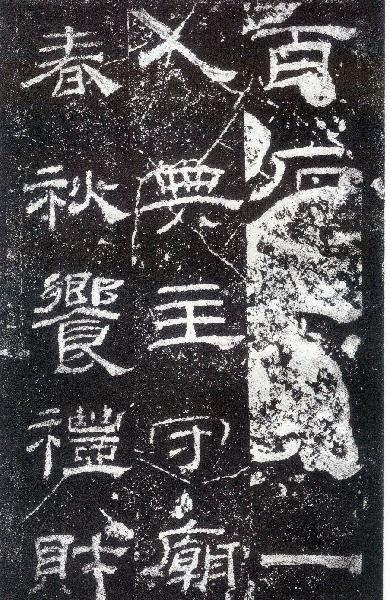 百石一
人典主守廟
春秋饗禮財